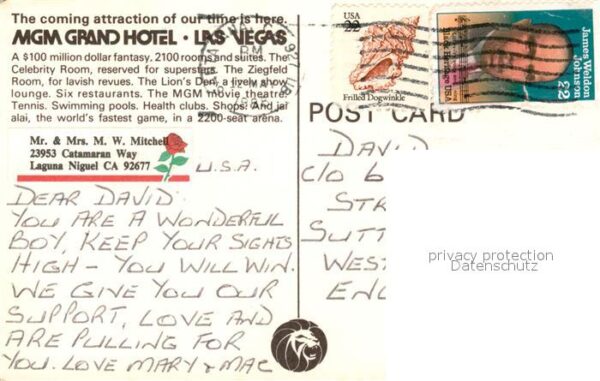 The coming attraction of our time is here.
MGM GRAND HOTEL • LAS VEGAS
A $100 million dollar fantasy. 2100 rooms and suites. The
Celebrity Room, reserved for superstars. The Ziegfeld
Room, for lavish revues. The Lion's Den, a lively show
lounge. Six restaurants. The MGM Movie theatre.
Tennis. Swimming pools. Health clubs. Shops. And jai
alai, the world's fastest game, in a 2200-seat arena.
Mr. & Mrs. M. W. Mitchell
23953 Catamaran Way
Laguna Niguel CA 92677
U.S.A.
DEAR DAVID
YOU ARE A WONDERFUL
BOY, KEEP YOUR SIGHTS
HIGH - YOU WILL WIN.
WE GIVE YOU OUR
SUPPORT, LOVE AND
ARE PULLING FOR
YOU. LOVE MARY + MAC
PM
USA
22
Frilled Dogwinkle
James Weldon
Johnson
22
POST CARD
DAVID
C/O 6
STR
SUTT
WEST
ENG
privacy protection
Datenschutz